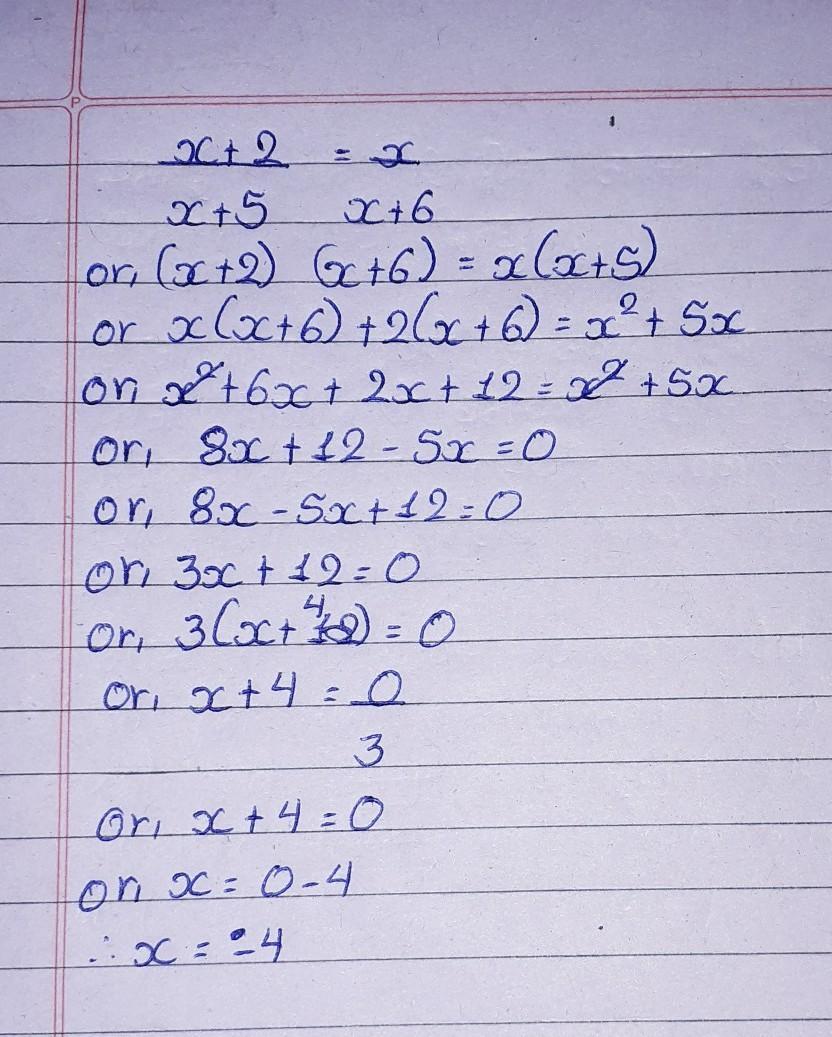 x+2 = x
x+5 x+6
or, (x+2) (x+6) = x(x+5)
or x(x+6)+2(x+6)=x²+5x
or, x²+6x+2x+12=x²+5x
or, 8x+12-5x=0
or, 8x-5x+12=0
or, 3x+12=0
or, 3(x+4)=0
or, x+4 = 0
3
or, x+4=0
or, x=0-4
∴ x=-4